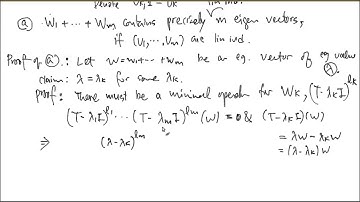 denote
(a) W₁+⋯+Wm contains precisely m eigen vectors,
if (U₁,⋯,Um) are lin ind.
Proof of (a): Let w=w₁+⋯+wm be an eg. vector of eg value λ.
claim: λ=λk for some λk.
proof: There must be a minimal operator for Wk, (T-λkI)^lk
(T-λ₁I)^l₁ ⋯ (T-λmI)^lm (w) = 0 & (T-λkI)(w)
= λw - λkw
⇒ (λ-λk)^lm = (λ-λk)w